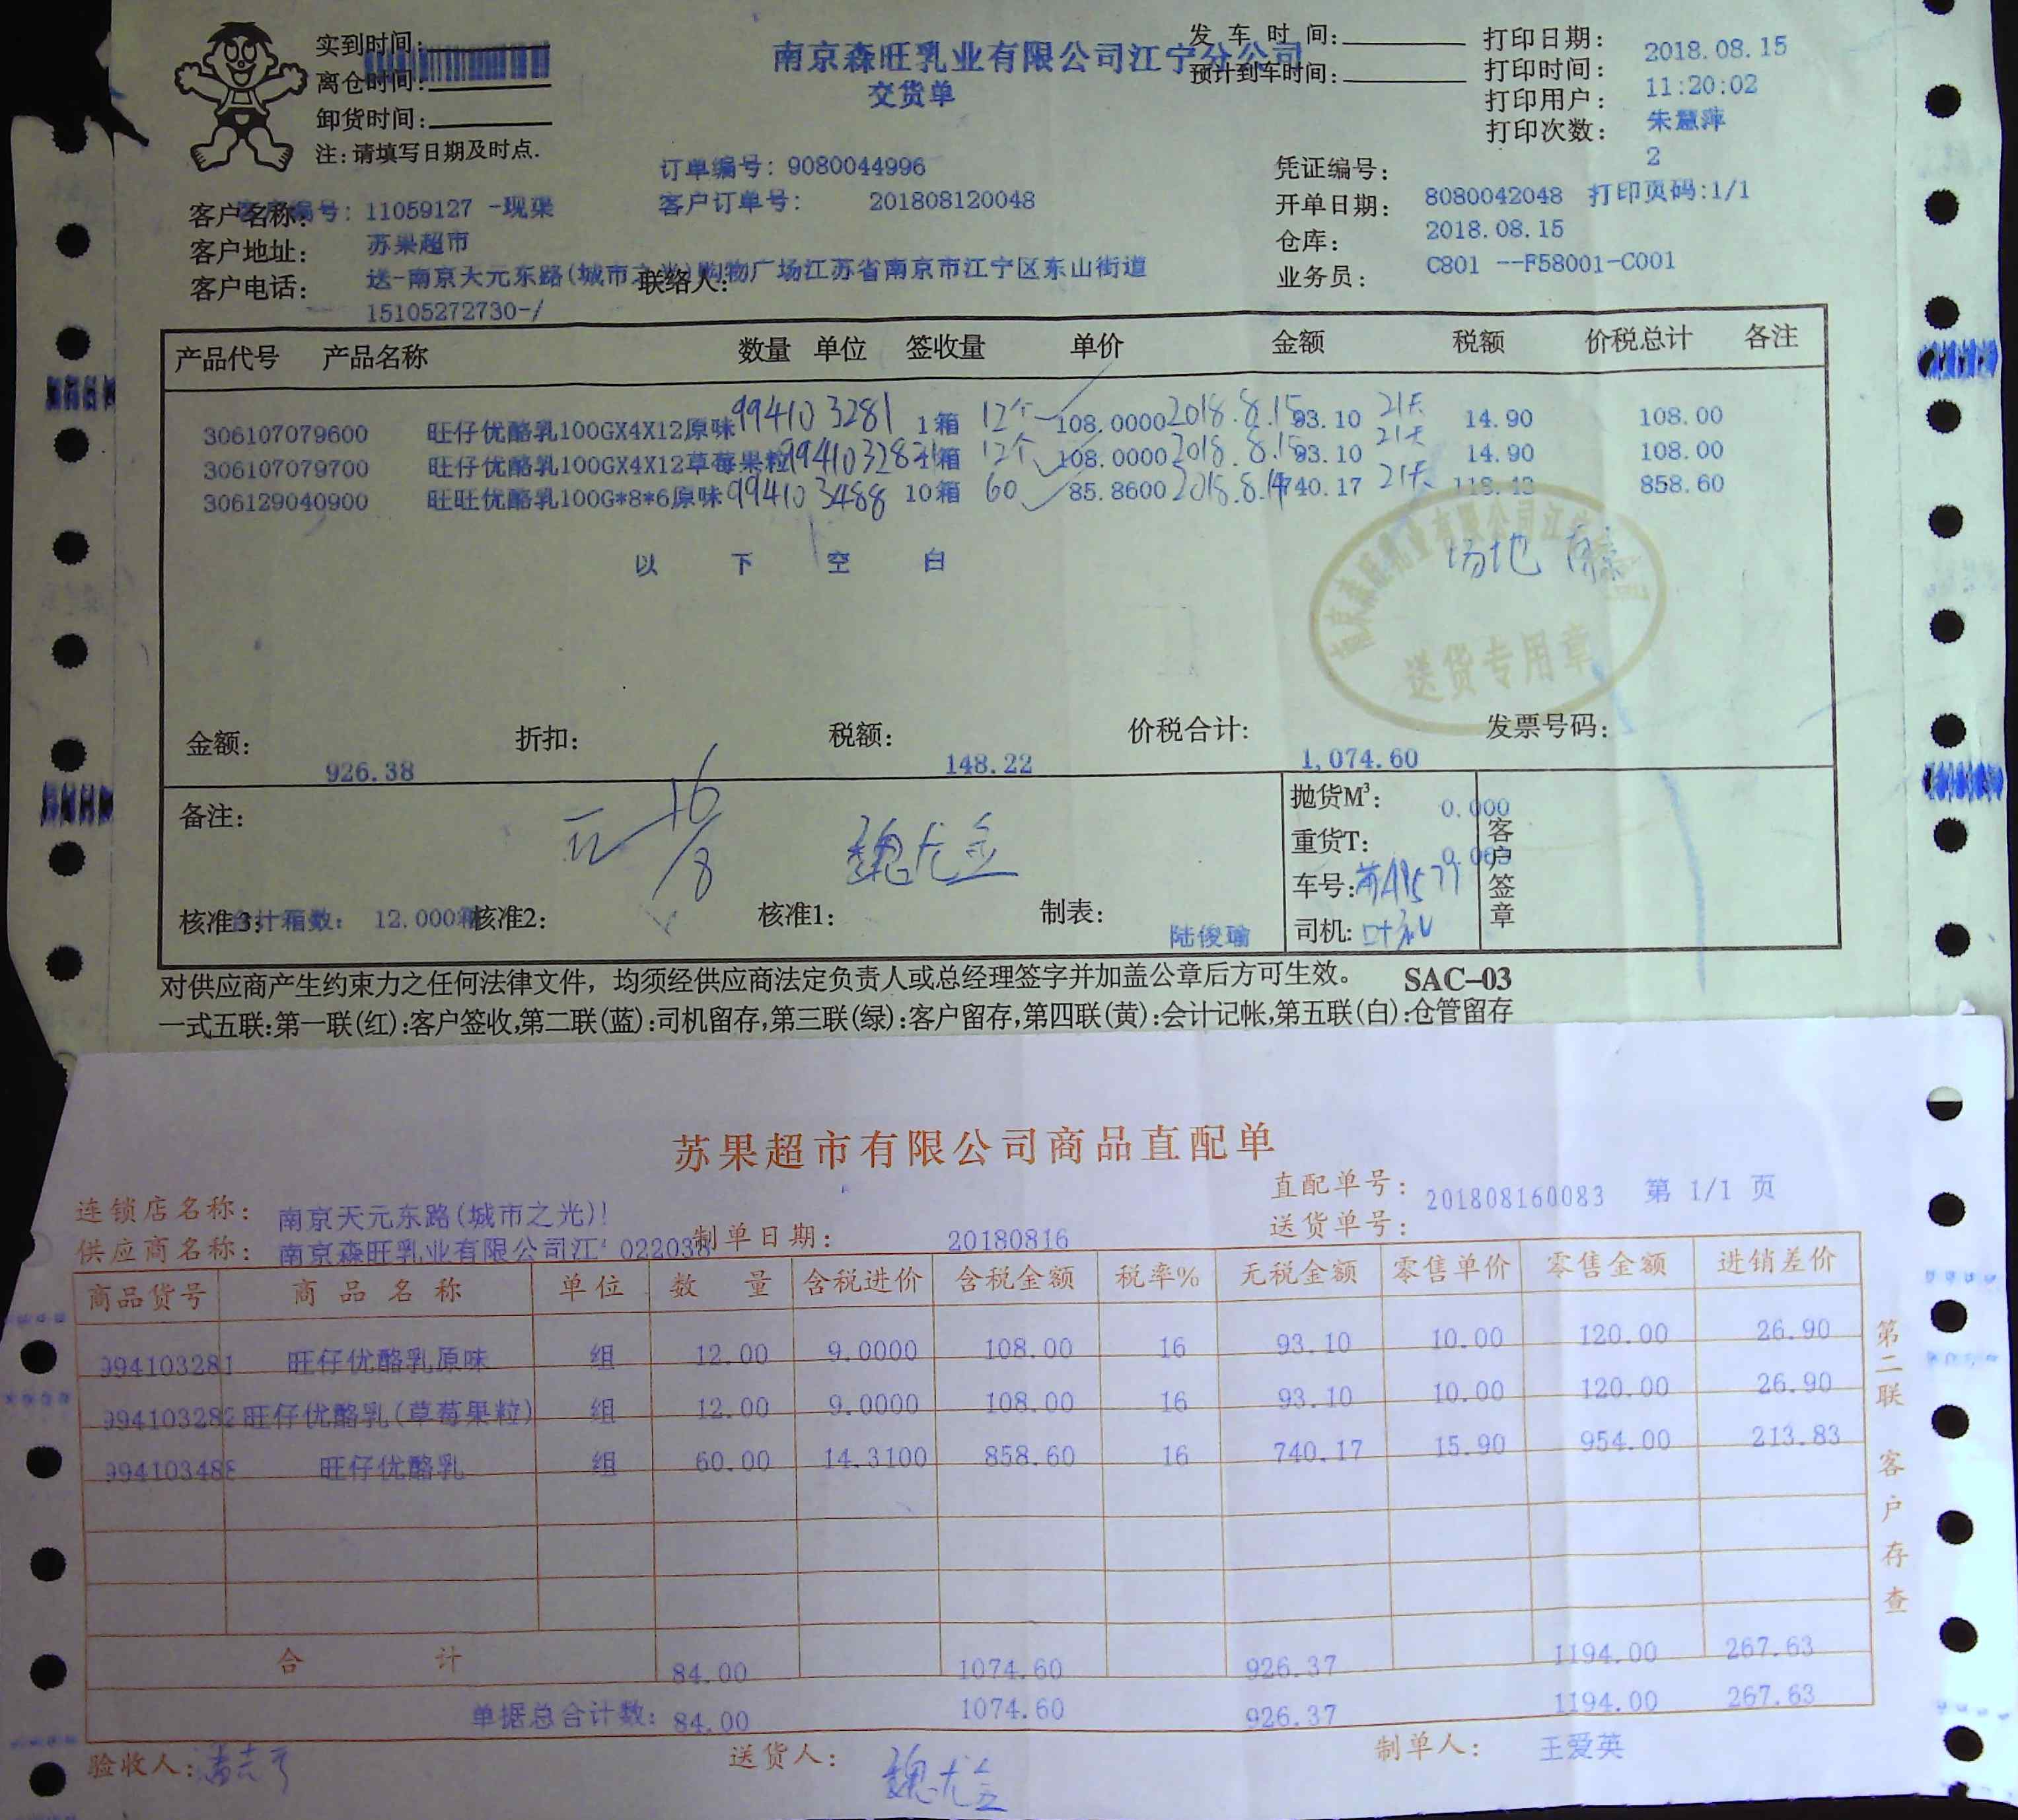 实到时间:
离仓时间:
卸货时间:
注:请填写日期及时点.
南京森旺乳业有限公司江宁分公司
交货单
发车时间:
预计到车时间:
打印日期: 2018.08.15
打印时间: 11:20:02
打印用户: 朱慧萍
打印次数: 2
订单编号: 9080044996
客户订单号: 201808120048
凭证编号: 8080042048 打印页码:1/1
开单日期: 2018.08.15
仓库: C801 --F58001-C001
业务员:
客户编号: 11059127 -现渠
客户名称: 苏果超市
客户地址: 送-南京天元东路(城市之光)购物广场江苏省南京市江宁区东山街道
客户电话: 15105272730-/
联络人:
产品代号 产品名称 数量 单位 签收量 单价 金额 税额 价税总计 各注
306107079600 旺仔优酪乳100GX4X12原味 994103281 1箱 12个 108.0000 2018.8.15 93.10 21天 14.90 108.00
306107079700 旺仔优酪乳100GX4X12草莓果粒 994103282 1箱 12个 108.0000 2018.8.15 93.10 21天 14.90 108.00
306129040900 旺旺优酪乳100G*8*6原味 994103488 10箱 60 85.8600 2018.8.14 740.17 21天 118.43 858.60
以下空白
场地
送货专用章
金额: 926.38 折扣: 税额: 148.22 价税合计: 1,074.60 发票号码:
备注:
16/8
魏尤金
抛货M³: 0.000
重货T:
车号:
司机:
客户签章
核准3: 合计箱数: 12.000箱 核准2: 核准1: 制表: 陆俊瑜
对供应商产生约束力之任何法律文件，均须经供应商法定负责人或总经理签字并加盖公章后方可生效。 SAC-03
一式五联:第一联(红):客户签收,第二联(蓝):司机留存,第三联(绿):客户留存,第四联(黄):会计记帐,第五联(白):仓管留存
苏果超市有限公司商品直配单
连锁店名称: 南京天元东路(城市之光)!
直配单号: 201808160083 第 1/1 页
供应商名称: 南京森旺乳业有限公司江 022038
制单日期: 20180816
送货单号:
商品货号 商品名称 单位 数量 含税进价 含税金额 税率% 无税金额 零售单价 零售金额 进销差价
994103281 旺仔优酪乳原味 组 12.00 9.0000 108.00 16 93.10 10.00 120.00 26.90
994103282 旺仔优酪乳(草莓果粒) 组 12.00 9.0000 108.00 16 93.10 10.00 120.00 26.90
994103488 旺仔优酪乳 组 60.00 14.3100 858.60 16 740.17 15.90 954.00 213.83
合计 84.00 1074.60 926.37 1194.00 267.63
单据总合计数: 84.00 1074.60 926.37 1194.00 267.63
第二联 客户存查
验收人: 送货人: 魏尤金 制单人: 王爱英